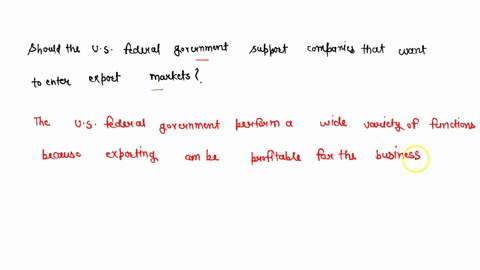 Should the U.S. federal government support companies that want
to enter export markets?
The U.S. federal government perform a wide variety of functions
because exporting can be profitable for the business